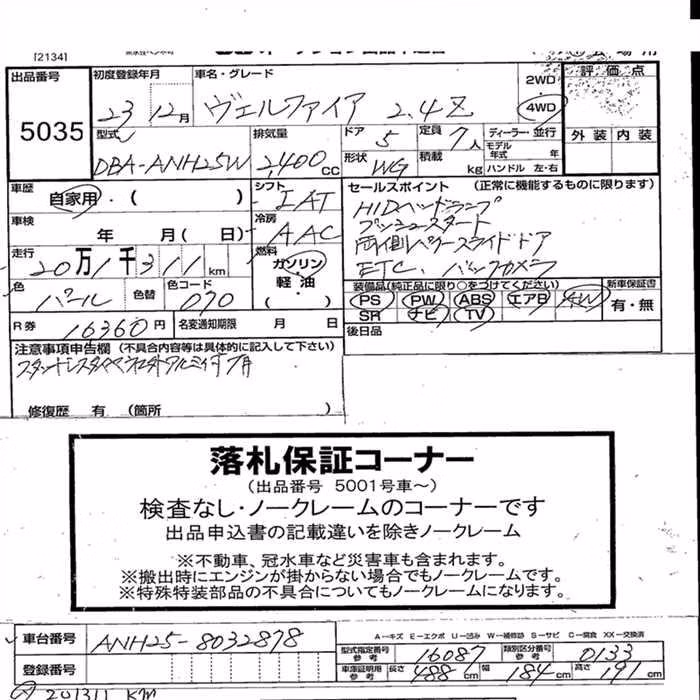 [2134]
出品番号
5035
初度登録年月
23 12月
車名・グレード
ヴェルファイア 2.4Z
2WD
4WD
評価点
外装 内装
型式
DBA-ANH25W
排気量
2,400cc
ドア 5
定員 7人
形状 WG
積載 kg
ディーラー・並行
モデル年式 年
ハンドル 左・右
車歴
自家用・( )
シフト
IAT
車検
年 月(日)
冷房
AAC
走行
20万1千311km
燃料
ガソリン
軽油
・( )
色
パール
色替
色コード
070
R券 16360円
名変通知期限 月 日
セールスポイント (正常に機能するものに限ります)
HIDヘッドランプ
プッシュスタート
両側パワースライドドア
ETC、バックカメラ
装備品(純正品に限り○をつけてください)
PS PW ABS エアB AW
SR ナビ TV
新車保証書
有・無
後日品
注意事項申告欄 (不具合内容等は具体的に記入して下さい)
修復歴 有 (箇所 )
落札保証コーナー
(出品番号 5001号車~)
検査なし・ノークレームのコーナーです
出品申込書の記載違いを除きノークレーム
※不動車、冠水車など災害車も含まれます。
※搬出時にエンジンが掛からない場合でもノークレームです。
※特殊特装部品の不具合についてもノークレームになります。
車台番号
ANH25-8032878
登録番号
A−キズ E−エクボ U−凹み W−補修跡 S−サビ C−腐食 XX−交換済
型式指定番号 参考 16087
類別区分番号 参考 0133
車庫証明用 参考 長さ 488cm 幅 184cm 高さ 191cm
201311 KM